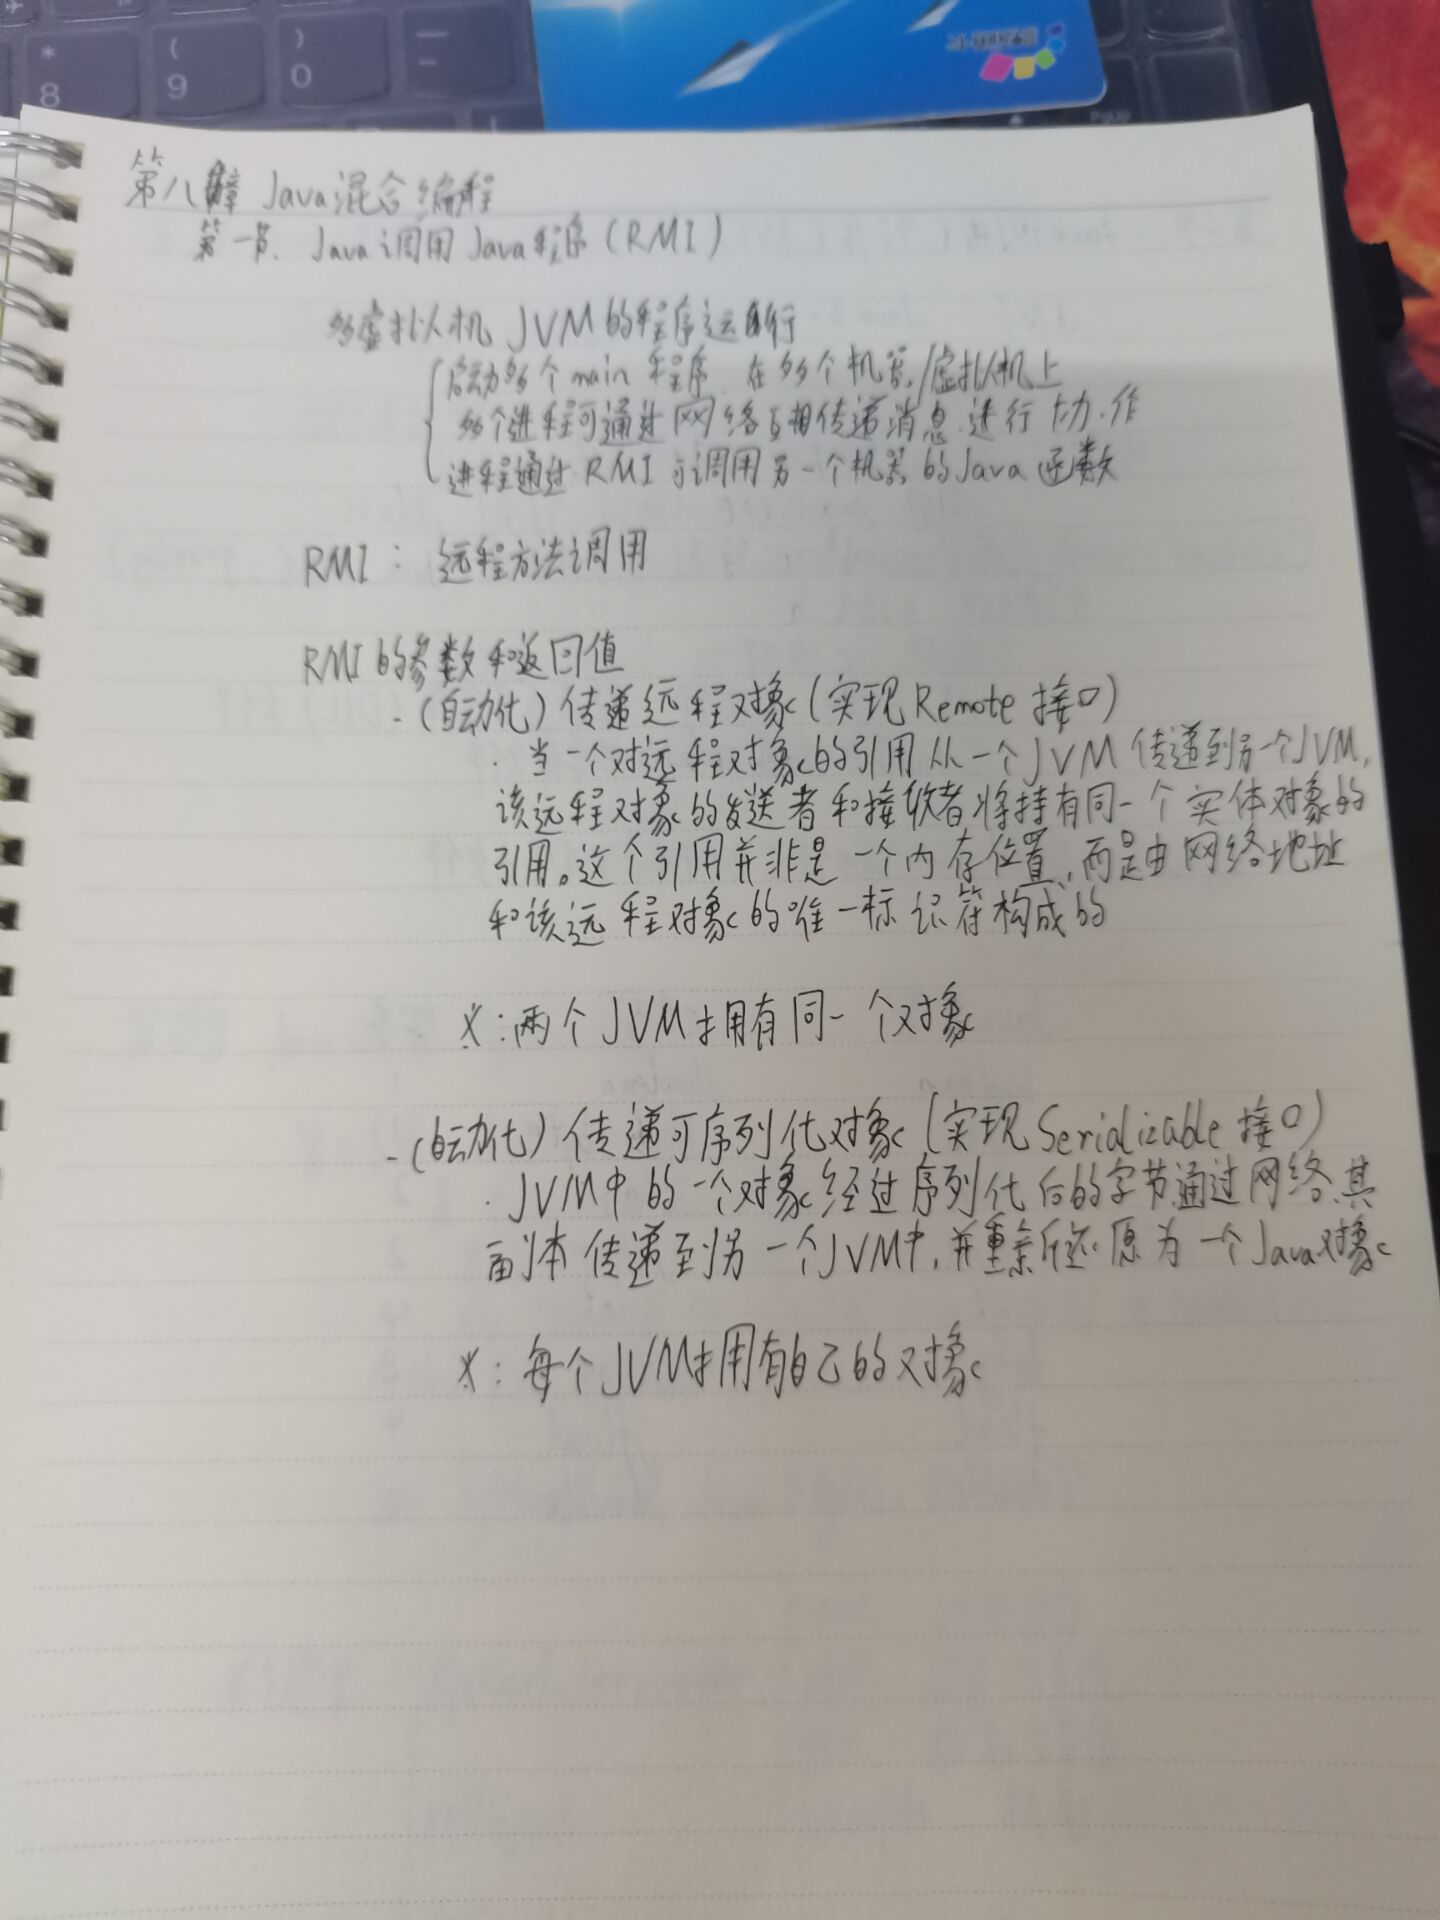 8
(
9
)
0
第八章 Java混合编程
第一节、Java调用Java程序(RMI)
多虚拟机JVM的程序运行
启动多个main程序,在多个机器/虚拟机上
多个进程可通过网络互相传递消息,进行协作
进程通过RMI可调用另一个机器的Java函数
RMI:远程方法调用
RMI的参数和返回值
-(自动化)传递远程对象(实现Remote接口)
·当一个对远程对象的引用从一个JVM传递到另一个JVM,
该远程对象的发送者和接收者将持有同一个实体对象的
引用。这个引用并非是一个内存位置,而是由网络地址
和该远程对象的唯一标识符构成的
※:两个JVM拥有同一个对象
-(自动化)传递可序列化对象(实现Serializable接口)
·JVM中的一个对象经过序列化后的字节通过网络,其
副本传递到另一个JVM中,并重新还原为一个Java对象
※:每个JVM拥有自己的对象